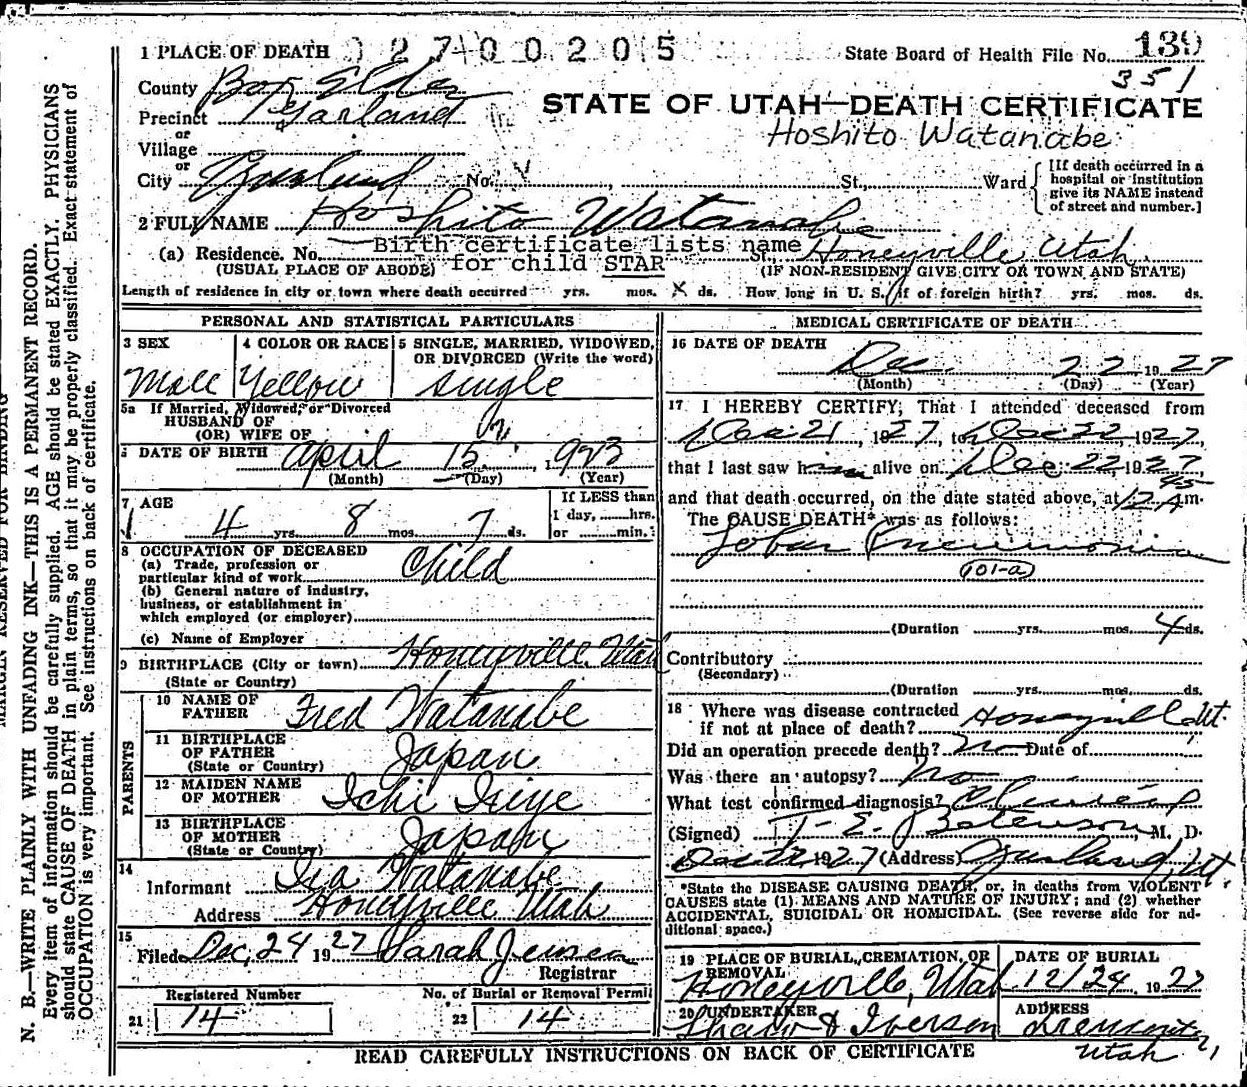 1 PLACE OF DEATH 02700205 State Board of Health File No. 139
351
County Box Elder
STATE OF UTAH—DEATH CERTIFICATE
Precinct Garland
Hoshito Watanabe
or
Village
or
City Garland No. St., Ward [If death occurred in a hospital or institution give its NAME instead of street and number.]
2 FULL NAME Hoshito Watanabe
(a) Residence. No. Birth certificate lists name St., Honeyville, Utah.
(USUAL PLACE OF ABODE) for child STAR (IF NON-RESIDENT GIVE CITY OR TOWN AND STATE)
Length of residence in city or town where death occurred yrs. mos. X ds. How long in U. S. if of foreign birth? yrs. mos. ds.
PERSONAL AND STATISTICAL PARTICULARS
3 SEX 4 COLOR OR RACE 5 SINGLE, MARRIED, WIDOWED, OR DIVORCED (Write the word)
Male Yellow single
5a If Married, Widowed, or Divorced
HUSBAND OF
(OR) WIFE OF
DATE OF BIRTH April 15, 1923
(Month) (Day) (Year)
7 AGE If LESS than
1 day, hrs.
4 yrs. 8 mos. 7 ds. or min.
8 OCCUPATION OF DECEASED
(a) Trade, profession or
particular kind of work Child
(b) General nature of industry,
business, or establishment in
which employed (or employer)
(c) Name of Employer
9 BIRTHPLACE (City or town) Honeyville, Utah
(State or Country)
PARENTS
10 NAME OF
FATHER Fred Watanabe
11 BIRTHPLACE
OF FATHER Japan
(State or Country)
12 MAIDEN NAME
OF MOTHER Ichi Iriye
13 BIRTHPLACE
OF MOTHER Japan
(State or Country)
14
Informant Watanabe
Address Honeyville Utah
15
Filed Dec, 24 1927 Sarah Jensen
Registrar
Registered Number No. of Burial or Removal Permit
21 14 22 14
MEDICAL CERTIFICATE OF DEATH
16 DATE OF DEATH
Dec. 22 1927
(Month) (Day) (Year)
17 I HEREBY CERTIFY, That I attended deceased from
Dec 21, 1927, to Dec 22, 1927,
that I last saw him alive on Dec 22 1927,
and that death occurred, on the date stated above, at 12 45 A m.
The CAUSE DEATH* was as follows:
Lobar Pneumonia
101-a
(Duration yrs. mos. 4 ds.
Contributory
(Secondary)
(Duration yrs. mos. ds.
18 Where was disease contracted
if not at place of death? Honeyville Ut.
Did an operation precede death? no Date of
Was there an autopsy? no
What test confirmed diagnosis? Clinical
(Signed) T. E. Betenson M. D.
Dec 22 1927 (Address) Garland, Ut
*State the DISEASE CAUSING DEATH, or, in deaths from VIOLENT
CAUSES state (1) MEANS AND NATURE OF INJURY; and (2) whether
ACCIDENTAL, SUICIDAL OR HOMICIDAL. (See reverse side for ad-
ditional space.)
19 PLACE OF BURIAL, CREMATION, OR REMOVAL DATE OF BURIAL
Honeyville, Utah 12/24 1927
20 UNDERTAKER ADDRESS
Shaw & Iverson Tremonton
Utah
READ CAREFULLY INSTRUCTIONS ON BACK OF CERTIFICATE
MARGIN RESERVED FOR BINDING
N. B.—WRITE PLAINLY WITH UNFADING INK—THIS IS A PERMANENT RECORD.
Every item of information should be carefully supplied. AGE should be stated EXACTLY. PHYSICIANS
should state CAUSE OF DEATH in plain terms, so that it may be properly classified. Exact statement of
OCCUPATION is very important. See instructions on back of certificate.